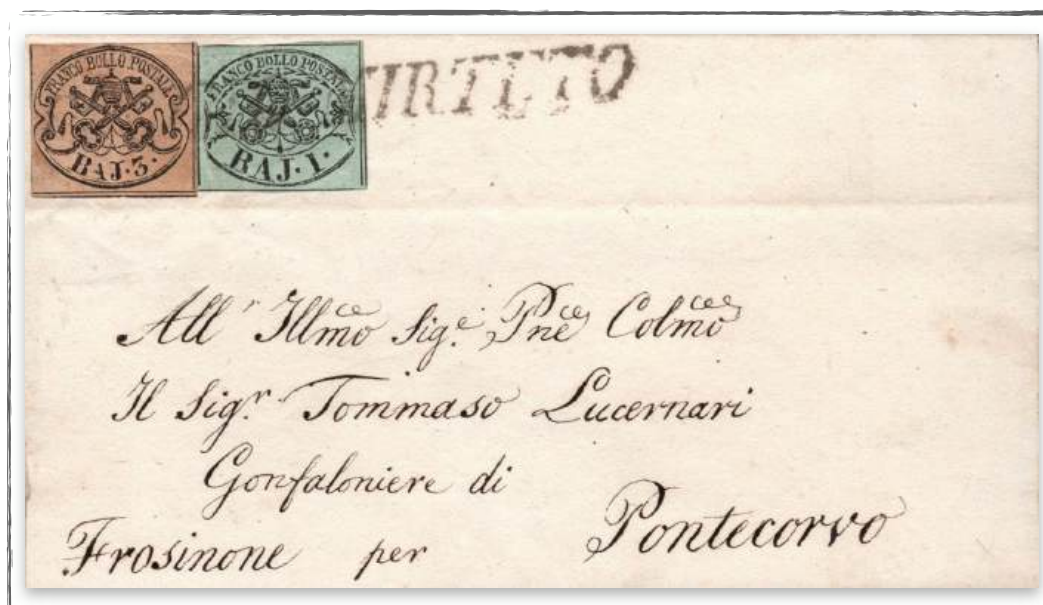 FRANCO BOLLO POSTALE
BAJ·3·
FRANCO BOLLO POSTALE
BAJ·1·
All' Illmo Sigr Pne Colmo
Il Sigr Tommaso Lucernari
Gonfaloniere di
Frosinone per Pontecorvo